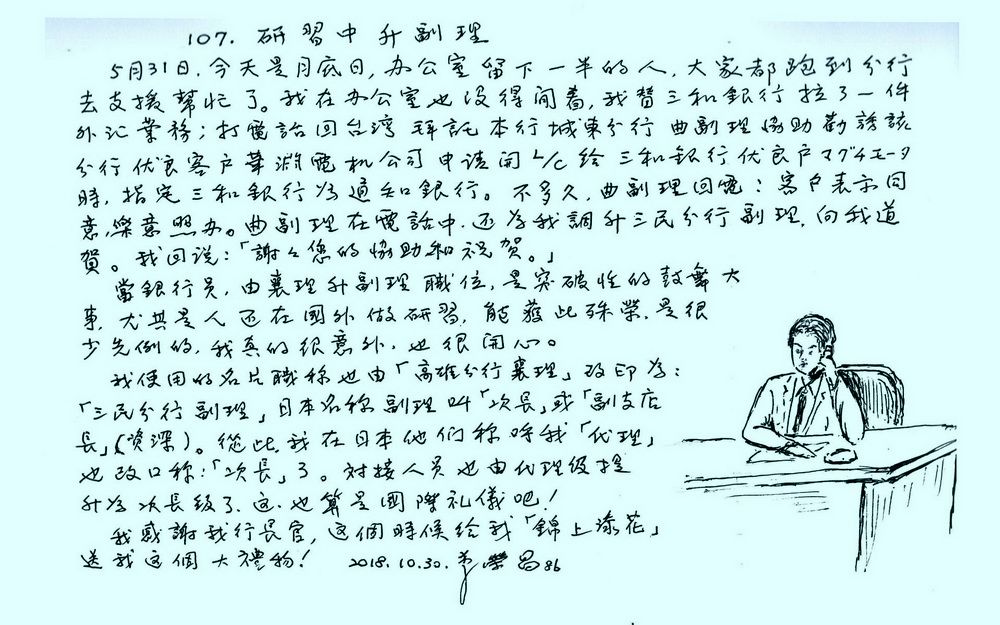 107. 研習中升副理
5月31日.今天是月底日,办公室留下一半的人.大家都跑到分行
去支援幫忙了。我在办公室也沒得閒着,我替三和銀行拉了一件
外汇業務;打電話回台灣拜託本行城東分行曲副理協助勸誘該
分行优良客户華淵電机公司申请開L/C給三和銀行优良户マグチモータ
時,指定三和銀行为通知銀行。不多久,曲副理回電:客户表示同
意,樂意照办。曲副理在電話中.还为我調升三民分行副理.向我道
賀。我回说:「謝々您的協助和祝賀。」
當銀行员,由襄理升副理職位,是突破性的鼓舞大
事,尤其是人还在國外做研習,能獲此殊榮.是很
少先例的,我真的很意外.也很開心。
我使用的名片職称也由「高雄分行襄理」改印为:
「三民分行副理」日本名称副理叫「次長」或「副支店
長」(資深)。從此.我在日本他们称呼我「代理」
也改口称:「次長」了。对接人员也由代理级提
升为次長级了.这.也算是國際礼儀吧!
我感謝我行長官,这個時候給我「錦上添花」
送我这個大禮物! 2018.10.30. 榮昌86